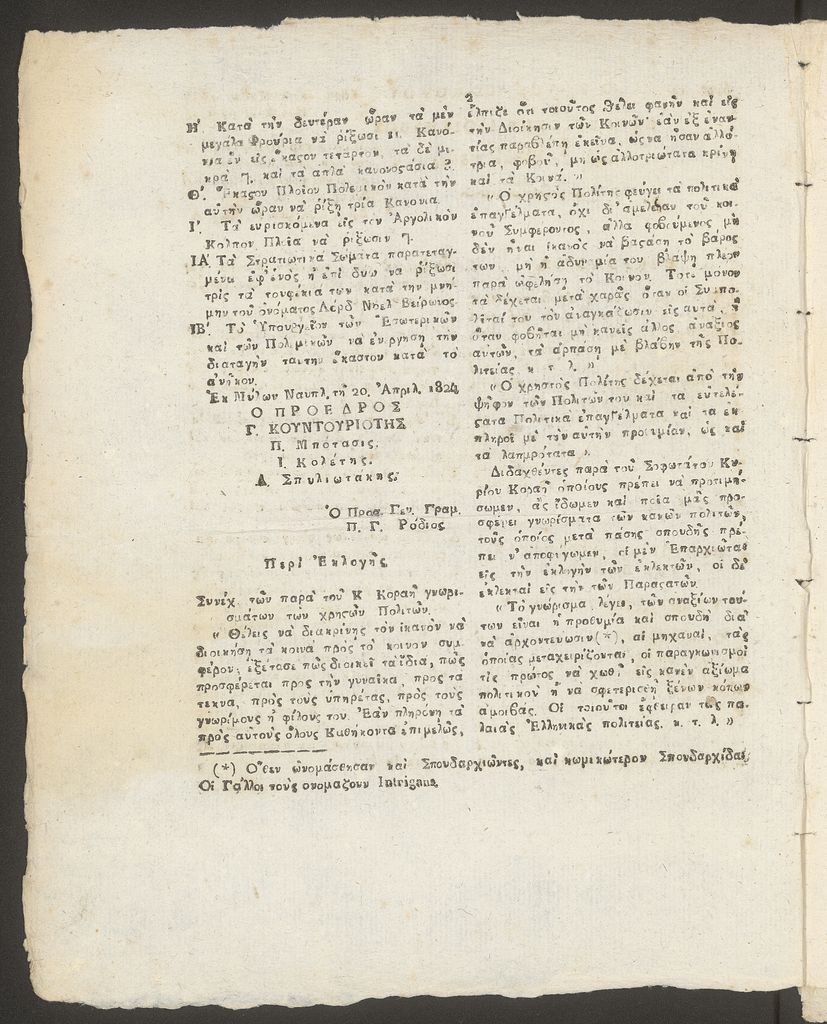 2
Η΄ Κατὰ τὴν δευτέραν ὥραν τὰ μὲν
μεγαλα Φρούρια νὰ ρίξωσι 21. Κανό-
νια ἓν εἰς ἕκαςον τεταρτον, τὰ δὲ μι-
κρὰ 7. καὶ τα ἁπλα κανονοςάσια 3.
Θ΄. Ἕκαςον Πλοῖον Πολεμικὸν κατὰ τὴν
αὐτὴν ὥραν νὰ ῥίξῃ τρία Κανονια.
Ι΄. Τὰ ευρισκόμενα εἰς τὸν Ἀργολικὸν
Κολπον Πλοῖα νὰ ρίξωσιν 7.
ΙΑ΄. Τὰ Στρατιωτικὰ Σώματα παρατεταγ-
μένα ἐφ' ἑνὸς ἢ ἐπὶ δύω νὰ ρίξωσι
τρὶς τὰ τουφέκια των κατὰ την μνή-
μην του ὀνόματος Λόρδ Νόελ Βείρωνος
ΙΒ΄. Τὸ Ὑπουργεῖον τῶν Ἐσωτερικῶν
καὶ τῶν Πολεμικῶν νὰ ἐνεργησῃ τὴν
διαταγὴν ταυτην ἕκαστον κατὰ τὸ
ἀνῆκον.
Ἐκ Μύλων Ναυπλ. τῇ 20. Ἀπριλ. 1824
Ο ΠΡΟΕΔΡΟΣ
Γ. ΚΟΥΝΤΟΥΡΙΟΤΗΣ
Π. Μπότασις.
Ι. Κολέτης.
Α. Σπυλιωτάκης.
Ὁ Προσ. Γεν. Γραμ.
Π. Γ. Ρόδιος
Περὶ Ἐκλογῆς
Συνέχ. τῶν παρὰ τοῦ Κ Κοραῆ γνωρι-
σμάτων τῶν χρηςῶν Πολιτῶν.
« Θέλεις νὰ διακρίνῃς τὸν ἱκανὸν νὰ
διοικήσῃ τὰ κοινὰ πρὸς τὸ κοινον συμ-
φέρον; ἐξέτασε πῶς διοικεῖ τὰ ἴδια, πῶς
προσφέρεται προς τὴν γυναῖκα, προς τα
τεκνα, πρὸς τοὺς ὑπηρέτας, πρὸς τοὺς
γνωρίμους ἢ φίλους του. Ἐὰν πληρόνῃ τὰ
πρὸς αὐτοὺς ὅλους Καθήκοντα ἐπιμελῶς,
ἔλπιζε ὅτι τοιοῦτος θέλει φανῆν καὶ εἰς
τὴν Διοίκησιν τῶν Κοινῶν· ἐὰν ἐξ ἐναν-
τίας παραβλέπῃ ἐκεῖνα, ὡς να ἦσαν αλλό-
τρια, φοβοῦ, μὴ ὡς αλλοτριώτατα κρίνῃ
καὶ τὰ Κοινά. »
« Ὁ χρηςὸς Πολίτης φεύγει τὰ πολιτικὰ
ἐπαγγέλματα, ὄχι δι' ἀμέλειαν τοῦ κοι-
νοῦ Συμφεροντος, ἀλλα φοβούμενος μὴ
δὲν ἦναι ἱκανὸς νὰ βαςάσῃ τὸ βάρος
των, μὴ ἡ ἀδυναμία του βλάψῃ πλεον
παρὰ ὠφελήσῃ τὸ Κοινον. Τοτε μονον
τὰ δέχεται μετὰ χαρᾶς ὅταν οἱ Συμπο-
λῖταί του τὸν ἀναγκάζωσιν εἰς αυτα, ἢ
ὅταν φοβῆται μὴ κανεὶς ἄλλος ἀνάξιος
αὐτων, τὰ ἁρπάσῃ μὲ βλάβην τῆς Πο-
λιτείας κ. τ. λ. »
« Ὁ χρηστὸς Πολίτης δέχεται ἀπὸ τὴν
ψῆφον τῶν Πολιτῶν του καὶ τα εὐτελέ-
ςατα Πολιτικὰ ἐπαγγέλματα καὶ τα ἐκ-
πληροῖ μὲ τὴν αὐτὴν προθυμίαν, ὡς καὶ
τὰ λαμπρότατα ».
Διδαχθέντες παρὰ τοῦ Σοφωτάτου Κυ-
ρίου Κοραῆ ὁποίους πρέπει νὰ προτιμή-
σωμεν, ἂς ἴδωμεν καὶ ποῖα μᾶς προ-
σφέρει γνωρίσματα τῶν κακῶν πολιτῶν,
τοὺς ὁποίος μετὰ πάσης σπουδῆς πρέ-
πει ν' ἀποφύγωμεν, οἱ μὲν Ἐπαρχιῶται
εἰς τὴν ἐκλογὴν τῶν ἐκλεκτῶν, οἱ δὲ
ἐκλεκται εἰς τὴν τῶν Παραςατῶν.
« Τὸ γνώρισμα, λέγει, τῶν ἀναξίων τού-
των εἶναι ἡ προθυμία καὶ σπουδὴ διὰ
νὰ ἀρχοντεύωσιν(*), αἱ μηχαναὶ, τὰς
ὁποίας μεταχειρίζονται, οἱ παραγκωνισμοὶ
τίς πρῶτος νὰ χωθῇ εἰς κανὲν ἀξίωμα
πολιτικὸν ἢ νὰ σφετερισθῇ ξένων κόπων
ἀμοιβάς. Οἱ τοιοῦτοι ἔφθειραν τὰς πα-
λαιὰς Ἑλληνικὰς πολιτείας. κ. τ. λ. »
(*) Ὅθεν ὠνομάσθησαν καὶ Σπουδαρχιῶντες, καὶ κωμικώτερον Σπουδαρχίδαι
Οἱ Γάλλοι τοὺς ονομαζουν Intrigans.